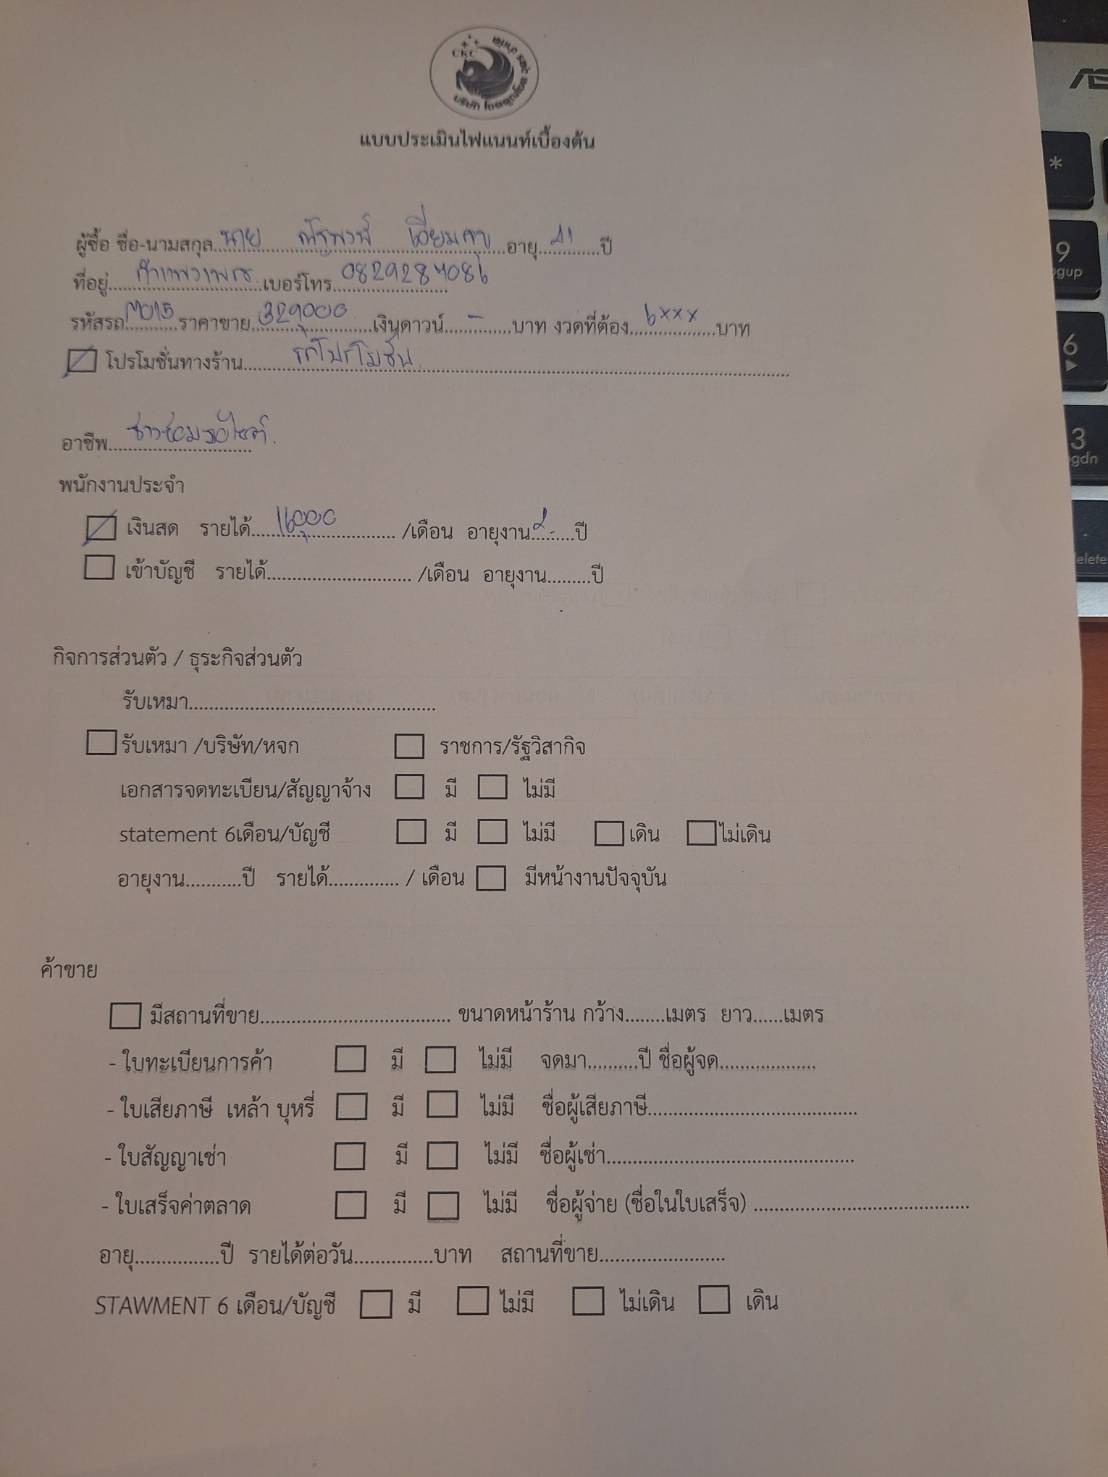 CKC
แบบประเมินไฟแนนท์เบื้องต้น
ผู้ซื้อ ชื่อ-นามสกุล นาย ณัฐพงษ์ อายุ ปี
ที่อยู่ กำแพงเพชร เบอร์โทร 0829284086
รหัสรถ M015 ราคาขาย 329,000 เงินดาวน์ - บาท งวดที่ต้อง 6xxx บาท
โปรโมชั่นทางร้าน รถโปรโมชั่น
อาชีพ ช่างซ่อมมอไซค์
พนักงานประจำ
เงินสด รายได้ 16,000 /เดือน อายุงาน ปี
เข้าบัญชี รายได้ /เดือน อายุงาน ปี
กิจการส่วนตัว / ธุระกิจส่วนตัว
รับเหมา
รับเหมา /บริษัท/หจก ราชการ/รัฐวิสากิจ
เอกสารจดทะเบียน/สัญญาจ้าง มี ไม่มี
statement 6เดือน/บัญชี มี ไม่มี เดิน ไม่เดิน
อายุงาน ปี รายได้ / เดือน มีหน้างานปัจจุบัน
ค้าขาย
มีสถานที่ขาย ขนาดหน้าร้าน กว้าง เมตร ยาว เมตร
- ใบทะเบียนการค้า มี ไม่มี จดมา ปี ชื่อผู้จด
- ใบเสียภาษี เหล้า บุหรี่ มี ไม่มี ชื่อผู้เสียภาษี
- ใบสัญญาเช่า มี ไม่มี ชื่อผู้เช่า
- ใบเสร็จค่าตลาด มี ไม่มี ชื่อผู้จ่าย (ชื่อในใบเสร็จ)
อายุ ปี รายได้ต่อวัน บาท สถานที่ขาย
STAWMENT 6 เดือน/บัญชี มี ไม่มี ไม่เดิน เดิน
*
9
6
3